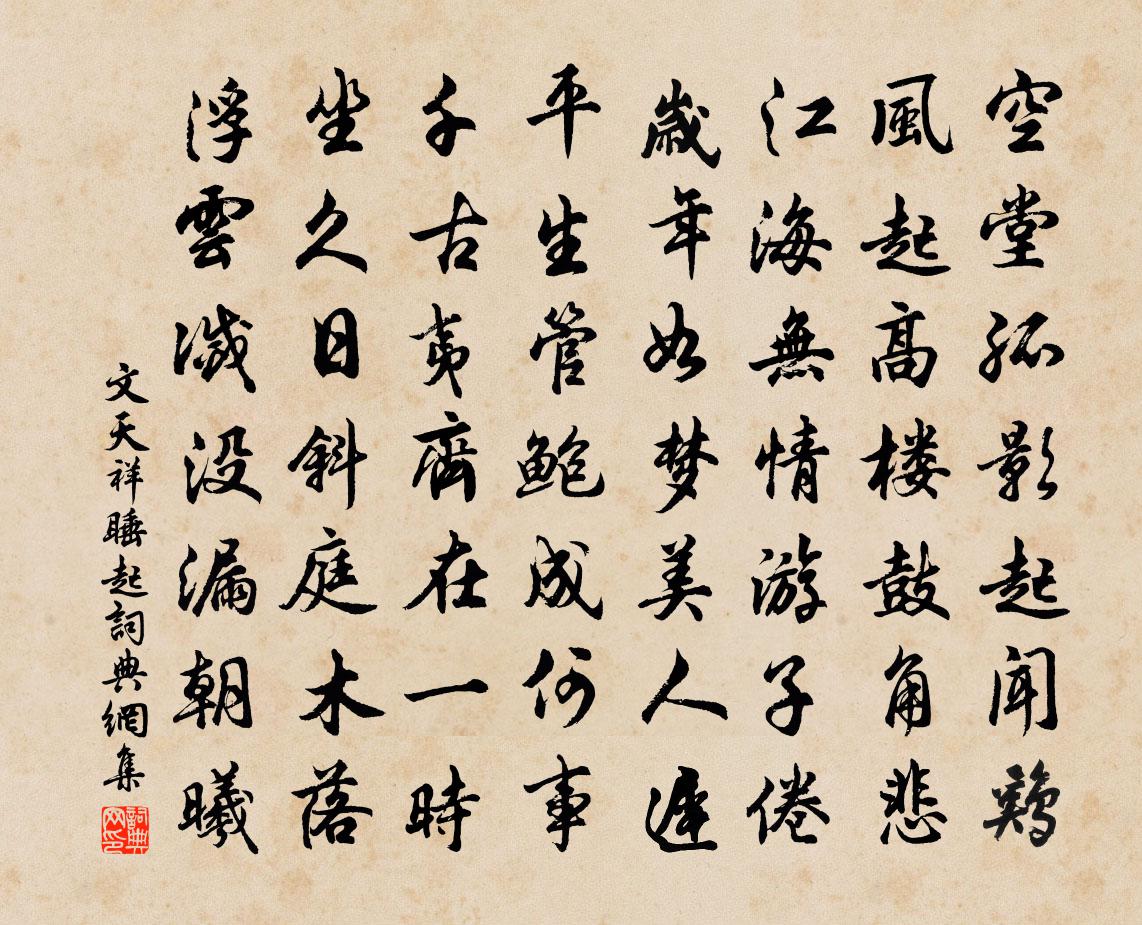 空堂孤影起闻鷄
風起高楼鼓角悲
江海無情游子倦
歲年如梦美人遲
平生管鮑成何事
千古夷齊在一時
坐久日斜庭木落
浮雲滅没漏朝曦
文天祥睡起詞典網集
詞典网印